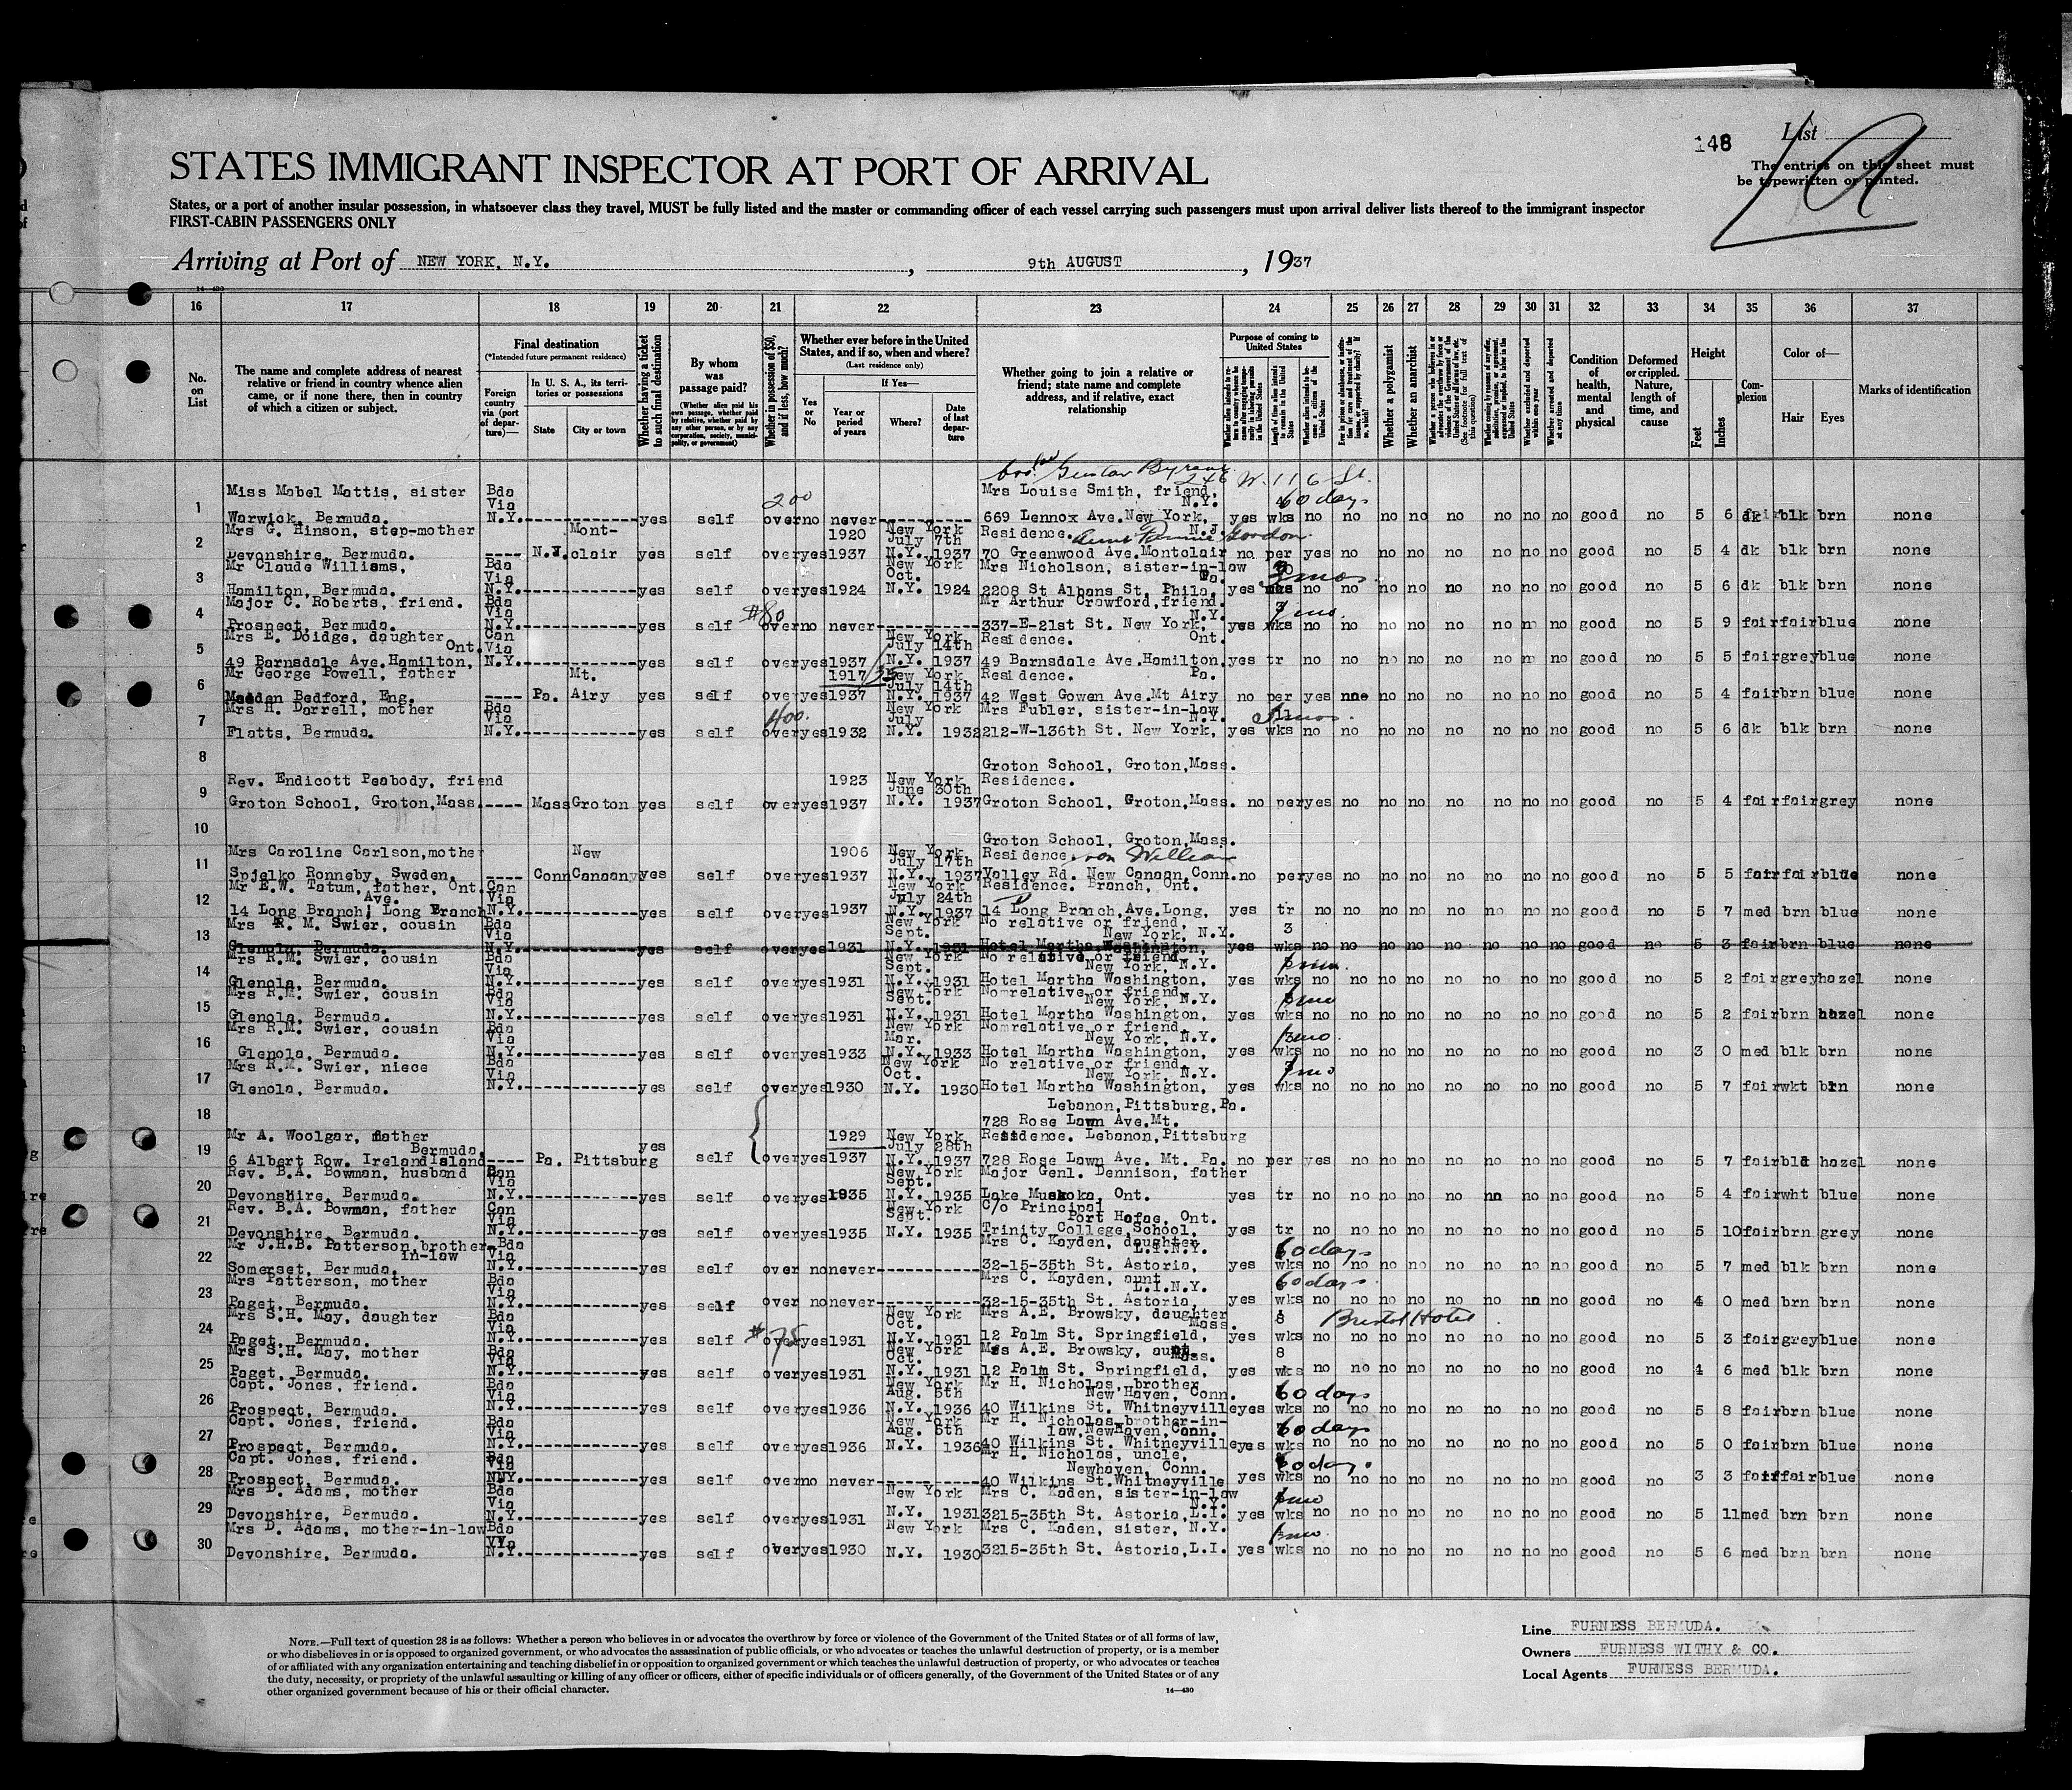 148
List
1 A
The entries on this sheet must
be typewritten or printed.
STATES IMMIGRANT INSPECTOR AT PORT OF ARRIVAL
States, or a port of another insular possession, in whatsoever class they travel, MUST be fully listed and the master or commanding officer of each vessel carrying such passengers must upon arrival deliver lists thereof to the immigrant inspector
FIRST-CABIN PASSENGERS ONLY
Arriving at Port of NEW YORK, N.Y. , 9th AUGUST , 1937
14-430
16 17 18 19 20 21 22 23 24 25 26 27 28 29 30 31 32 33 34 35 36 37
No. on List
The name and complete address of nearest relative or friend in country whence alien came, or if none there, then in country of which a citizen or subject.
Final destination
(*Intended future permanent residence)
Foreign country via (port of departure)—
In U. S. A., its territories or possessions
State
City or town
Whether having a ticket to such final destination
By whom was passage paid?
(Whether alien paid his own passage, whether paid by relative, whether paid by any other person, or by any corporation, society, municipality, or government)
Whether in possession of $50, and if less, how much?
Whether ever before in the United States, and if so, when and where?
(Last residence only)
Yes or No
If Yes—
Year or period of years
Where?
Date of last departure
Whether going to join a relative or friend; state name and complete address, and if relative, exact relationship
Purpose of coming to United States
Whether a polygamist
Whether an anarchist
Condition of health, mental and physical
Deformed or crippled. Nature, length of time, and cause
Height
Feet
Inches
Complexion
Color of—
Hair
Eyes
Marks of identification
Gustav
246 W. 116 St.
Miss Mabel Mattis, sister Bda Via 200 Mrs Louise Smith, friend, N.Y. 60 days
1 Warwick, Bermuda. N.Y. yes self over no never 669 Lennox Ave. New York, yes wks no no no no no no no no good no 5 6 dk blk brn none
Mrs G. Hinson, step-mother Mont- 1920 New York July 7th Residence. N.J. Gordon
2 Devonshire, Bermuda. N.J. clair yes self over yes 1937 N.Y. 1937 70 Greenwood Ave. Montclair no per yes no no no no no no no good no 5 4 dk blk brn none
Mr Claude Williams, Bda Via New York Oct. Mrs Nicholson, sister-in-law Pa. 3 mos.
3 Hamilton, Bermuda. N.Y. yes self over yes 1924 N.Y. 1924 2208 St Albans St. Phila. yes wks no no no no no no no no good no 5 6 dk blk brn none
Major C. Roberts, friend. Bda Via #80 Mr Arthur Crawford, friend. N.Y. 1 mo.
4 Prospect, Bermuda. N.Y. yes self over no never 337-E-21st St. New York, yes wks no no no no no no no no good no 5 9 fair fair blue none
Mrs E. Doidge, daughter Ont. Can Via New York July 14th Residence. Ont.
5 49 Barnsdale Ave. Hamilton, N.Y. yes self over yes 1937 N.Y. 1937 49 Barnsdale Ave. Hamilton. yes tr no no no no no no no no good no 5 5 fair grey blue none
Mr George Powell, father Mt. 1917 New York July 14th Residence. Pa.
6 Bedford, Eng. Pa. Airy yes self over yes 1937 N.Y. 1937 42 West Gowen Ave. Mt Airy no per yes no no no no no no good no 5 4 fair brn blue none
Mrs H. Darrell, mother Bda Via 400. New York July Mrs Fubler, sister-in-law N.Y.
7 Flatts, Bermuda. N.Y. yes self over yes 1932 N.Y. 1932 212-W-136th St. New York, yes wks no no no no no no no no good no 5 6 dk blk brn none
8 Groton School, Groton, Mass.
Rev. Endicott Peabody, friend 1923 New York June 30th Residence.
9 Groton School, Groton, Mass. Mass Groton yes self over yes 1937 N.Y. 1937 Groton School, Groton, Mass. no per yes no no no no no no no good no 5 4 fair fair grey none
10 Groton School, Groton, Mass.
Mrs Caroline Carlson, mother New 1906 New York July 17th Residence. son William
11 Spjelko Ronneby, Sweden. Conn Canaan yes self over yes 1937 N.Y. 1937 Valley Rd. New Canaan, Conn. no per yes no no no no no no no good no 5 5 fair fair blue none
Mr E.W. Tatum, father, Ont. Ave. Can Via New York July 24th Residence. Branch, Ont.
12 14 Long Branch, Long Branch N.Y. yes self over yes 1937 N.Y. 1937 14 Long Branch, Ave. Long, yes tr no no no no no no no no good no 5 7 med brn blue none
Mrs R. M. Swier, cousin Bda Via New York Sept. No relative or friend, New York, N.Y. 3
13 Glenola, Bermuda. N.Y. yes self over yes 1931 N.Y. 1931 Hotel Martha Washington, yes wks no no no no no no no no good no 5 3 fair brn blue none
Mrs R.M. Swier, cousin Bda Via New York Sept. No relative or friend. New York, N.Y.
14 Glenola, Bermuda. N.Y. yes self over yes 1931 N.Y. 1931 Hotel Martha Washington, yes wks no no no no no no no no good no 5 2 fair grey hazel none
Mrs R.M. Swier, cousin Bda Via New York Sept. No relative or friend. New York, N.Y.
15 Glenola, Bermuda. N.Y. yes self over yes 1931 N.Y. 1931 Hotel Martha Washington, yes wks no no no no no no no no good no 5 2 fair brn hazel none
Mrs R.M. Swier, cousin Bda Via New York Mar. No relative or friend. New York, N.Y.
16 Glenola, Bermuda. N.Y. yes self over yes 1933 N.Y. 1933 Hotel Martha Washington, yes wks no no no no no no no no good no 3 0 med blk brn none
Mrs R.M. Swier, niece Bda Via New York Oct. No relative or friend. New York, N.Y.
17 Glenola, Bermuda. N.Y. yes self over yes 1930 N.Y. 1930 Hotel Martha Washington, yes wks no no no no no no no no good no 5 7 fair wkt brn none
Lebanon, Pittsburg, Pa.
18 728 Rose Lawn Ave. Mt.
Mr A. Woolgar, father Bermuda. 1929 New York July 28th Residence. Lebanon, Pittsburg
19 6 Albert Row. Ireland Island Pa. Pittsburg yes self over yes 1937 N.Y. 1937 728 Rose Lawn Ave. Mt. Pa. no per yes no no no no no no no good no 5 7 fair bld hazel none
Rev. B.A. Bowman, husband Can Via New York Sept. Major Genl. Dennison, father
20 Devonshire, Bermuda. N.Y. yes self over yes 1935 N.Y. 1935 Lake Muskoka, Ont. yes tr no no no no no no no no good no 5 4 fair wht blue none
Rev. B.A. Bowman, father Can Via New York Sept. C/o Principal Port Hofae, Ont.
21 Devonshire, Bermuda. N.Y. yes self over yes 1935 N.Y. 1935 Trinity College, School, yes tr no no no no no no no no good no 5 10 fair brn grey none
Mr J.H.B. Patterson, brother in-law Bda Via Mrs C. Kayden, daughter L.I.N.Y. 60 days
22 Somerset, Bermuda. N.Y. yes self over no never 32-15-35th St. Astoria, yes wks no no no no no no no no good no 5 7 med blk brn none
Mrs Patterson, mother Bda Via Mrs C. Kayden, aunt L.I.N.Y. 60 days.
23 Paget, Bermuda. N.Y. yes self over no never 32-15-35th St. Astoria, yes wks no no no no no no no no good no 4 0 med brn brn none
Mrs S.H. May, daughter Bda Via #75 New York Oct. Mrs A.E. Browsky, daughter Mass. 8 Bristol Hotel
24 Paget, Bermuda. N.Y. yes self over yes 1931 N.Y. 1931 12 Palm St. Springfield, yes wks no no no no no no no no good no 5 3 fair grey blue none
Mrs S.H. May, mother Bda Via New York Oct. Mrs A.E. Browsky, aunt Mass. 8
25 Paget, Bermuda. N.Y. yes self over yes 1931 N.Y. 1931 12 Palm St. Springfield, yes wks no no no no no no no no good no 4 6 med blk brn none
Capt. Jones, friend. Bda Via New York Aug. 6th Mr H. Nicholas, brother New Haven, Conn. 60 days
26 Prospect, Bermuda. N.Y. yes self over yes 1936 N.Y. 1936 40 Wilkins St. Whitneyville yes wks no no no no no no no no good no 5 8 fair brn blue none
Capt. Jones, friend. Bda Via New York Aug. 6th Mr H. Nicholas, brother-in-law, New Haven, Conn. 60 days
27 Prospect, Bermuda. N.Y. yes self over yes 1936 N.Y. 1936 40 Wilkins St. Whitneyville yes wks no no no no no no no no good no 5 0 fair brn blue none
Capt. Jones, friend. Bda Via Mr H. Nicholas, uncle, Newhaven, Conn. 60 days.
28 Prospect, Bermuda. N.Y. yes self over no never 40 Wilkins St. Whitneyville yes wks no no no no no no no no good no 3 3 fair fair blue none
Mrs D. Adams, mother Bda Via New York Mrs C. Kaden, sister-in-law N.Y.
29 Devonshire, Bermuda. N.Y. yes self over yes 1931 N.Y. 1931 3215-35th St. Astoria, L.I. yes wks no no no no no no no no good no 5 11 med brn brn none
Mrs D. Adams, mother-in-law Bda Via New York Mrs C. Kaden, sister, N.Y.
30 Devonshire, Bermuda. N.Y. yes self over yes 1930 N.Y. 1930 3215-35th St. Astoria, L.I. yes wks no no no no no no no no good no 5 6 med brn brn none
NOTE.—Full text of question 28 is as follows: Whether a person who believes in or advocates the overthrow by force or violence of the Government of the United States or of all forms of law,
or who disbelieves in or is opposed to organized government, or who advocates the assassination of public officials, or who advocates or teaches the unlawful destruction of property, or is a member
of or affiliated with any organization entertaining and teaching disbelief in or opposition to organized government or which teaches the unlawful destruction of property, or who advocates or teaches
the duty, necessity, or propriety of the unlawful assaulting or killing of any officer or officers, either of specific individuals or of officers generally, of the Government of the United States or of any
other organized government because of his or their official character.
14—430
Line FURNESS BERMUDA.
Owners FURNESS WITHY & CO.
Local Agents FURNESS BERMUDA.